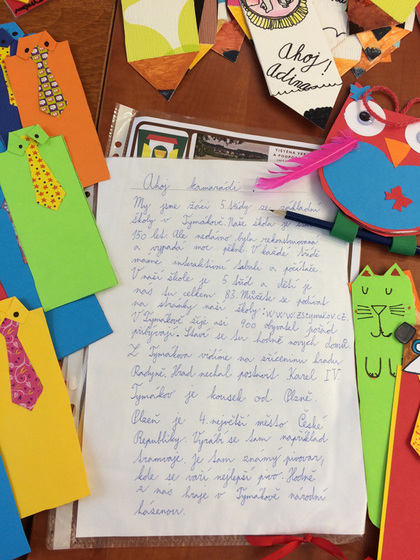 Ahoj!
Adina
TIŠTĚNA VER
Ahoj kamarádi,
My jsme žáci 5. třídy ze základní
školy v Tymákově. Naše škola je
150 let. Ale nedávno byla rekonstruována
a vypadá moc pěkně. V každé třídě
máme interaktivní tabuli a počítače.
V naší škole je 5 tříd a dětí je
nás tu celkem 83. Můžete se podívat
na stránky naší školy: www.zstymakov.cz.
V Tymákově žije asi 900 obyvatel pořád
přibývají. Staví se tu hodně nových domů.
Z Tymákova vidíme na zříceninu hradu
Radyně. Hrad nechal postavit Karel IV.
Tymákov je kousek od Plzně.
Plzeň je 4. největší město České
Republiky. Vyrábí se tam například
tramvaje. Je tam známý pivovar,
kde se vaří nejlepší pivo. Hodně
z nás hraje v Tymákově národní
házenou.